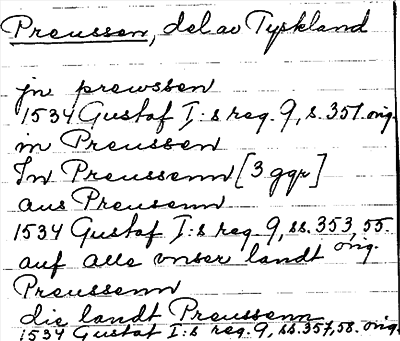 Preussen, del av Tyskland
jn prewssen
1534 Gustaf I:s reg. 9, s. 357. orig.
in Preussen
In Preussenn [3 ggr]
aus Preusenn
1534 Gustaf I:s reg. 9, ss. 353, 55. orig.
auf alle vnser landt
Preussenn
die landt Preussenn
1534 Gustaf I:s reg. 9, ss. 357, 58. orig.